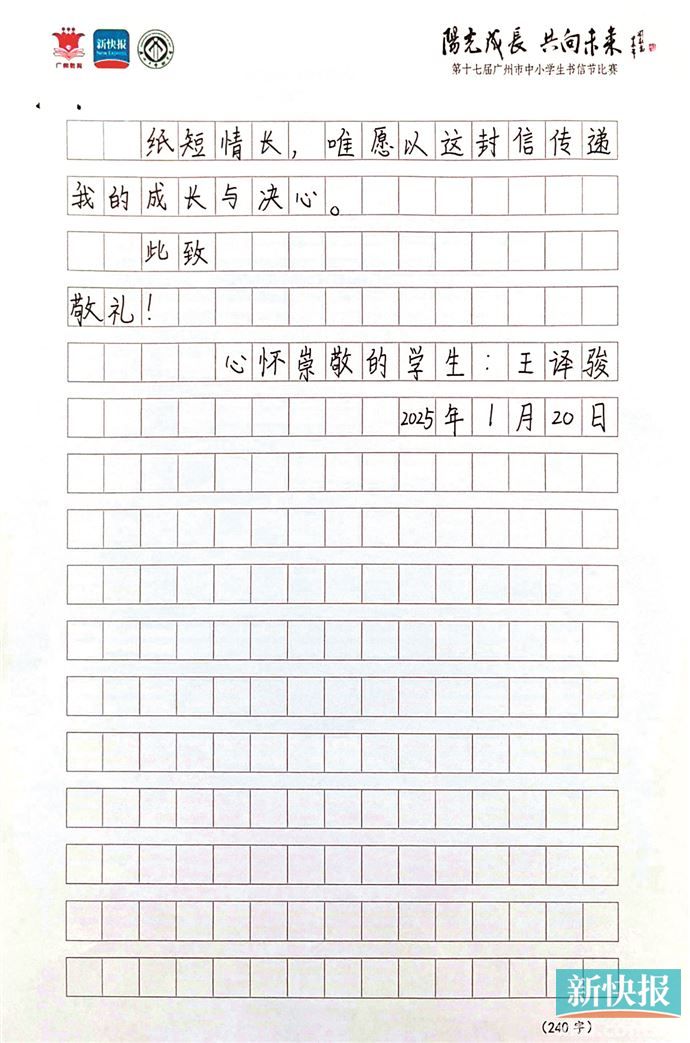 广州教育
新快报
New Express
陽光成長 共向未来
第十七届广州市中小学生书信节比赛
纸短情长，唯愿以这封信传递
我的成长与决心。
此致
敬礼！
心怀崇敬的学生：王译骏
2025年1月20日
新快报
（240字）